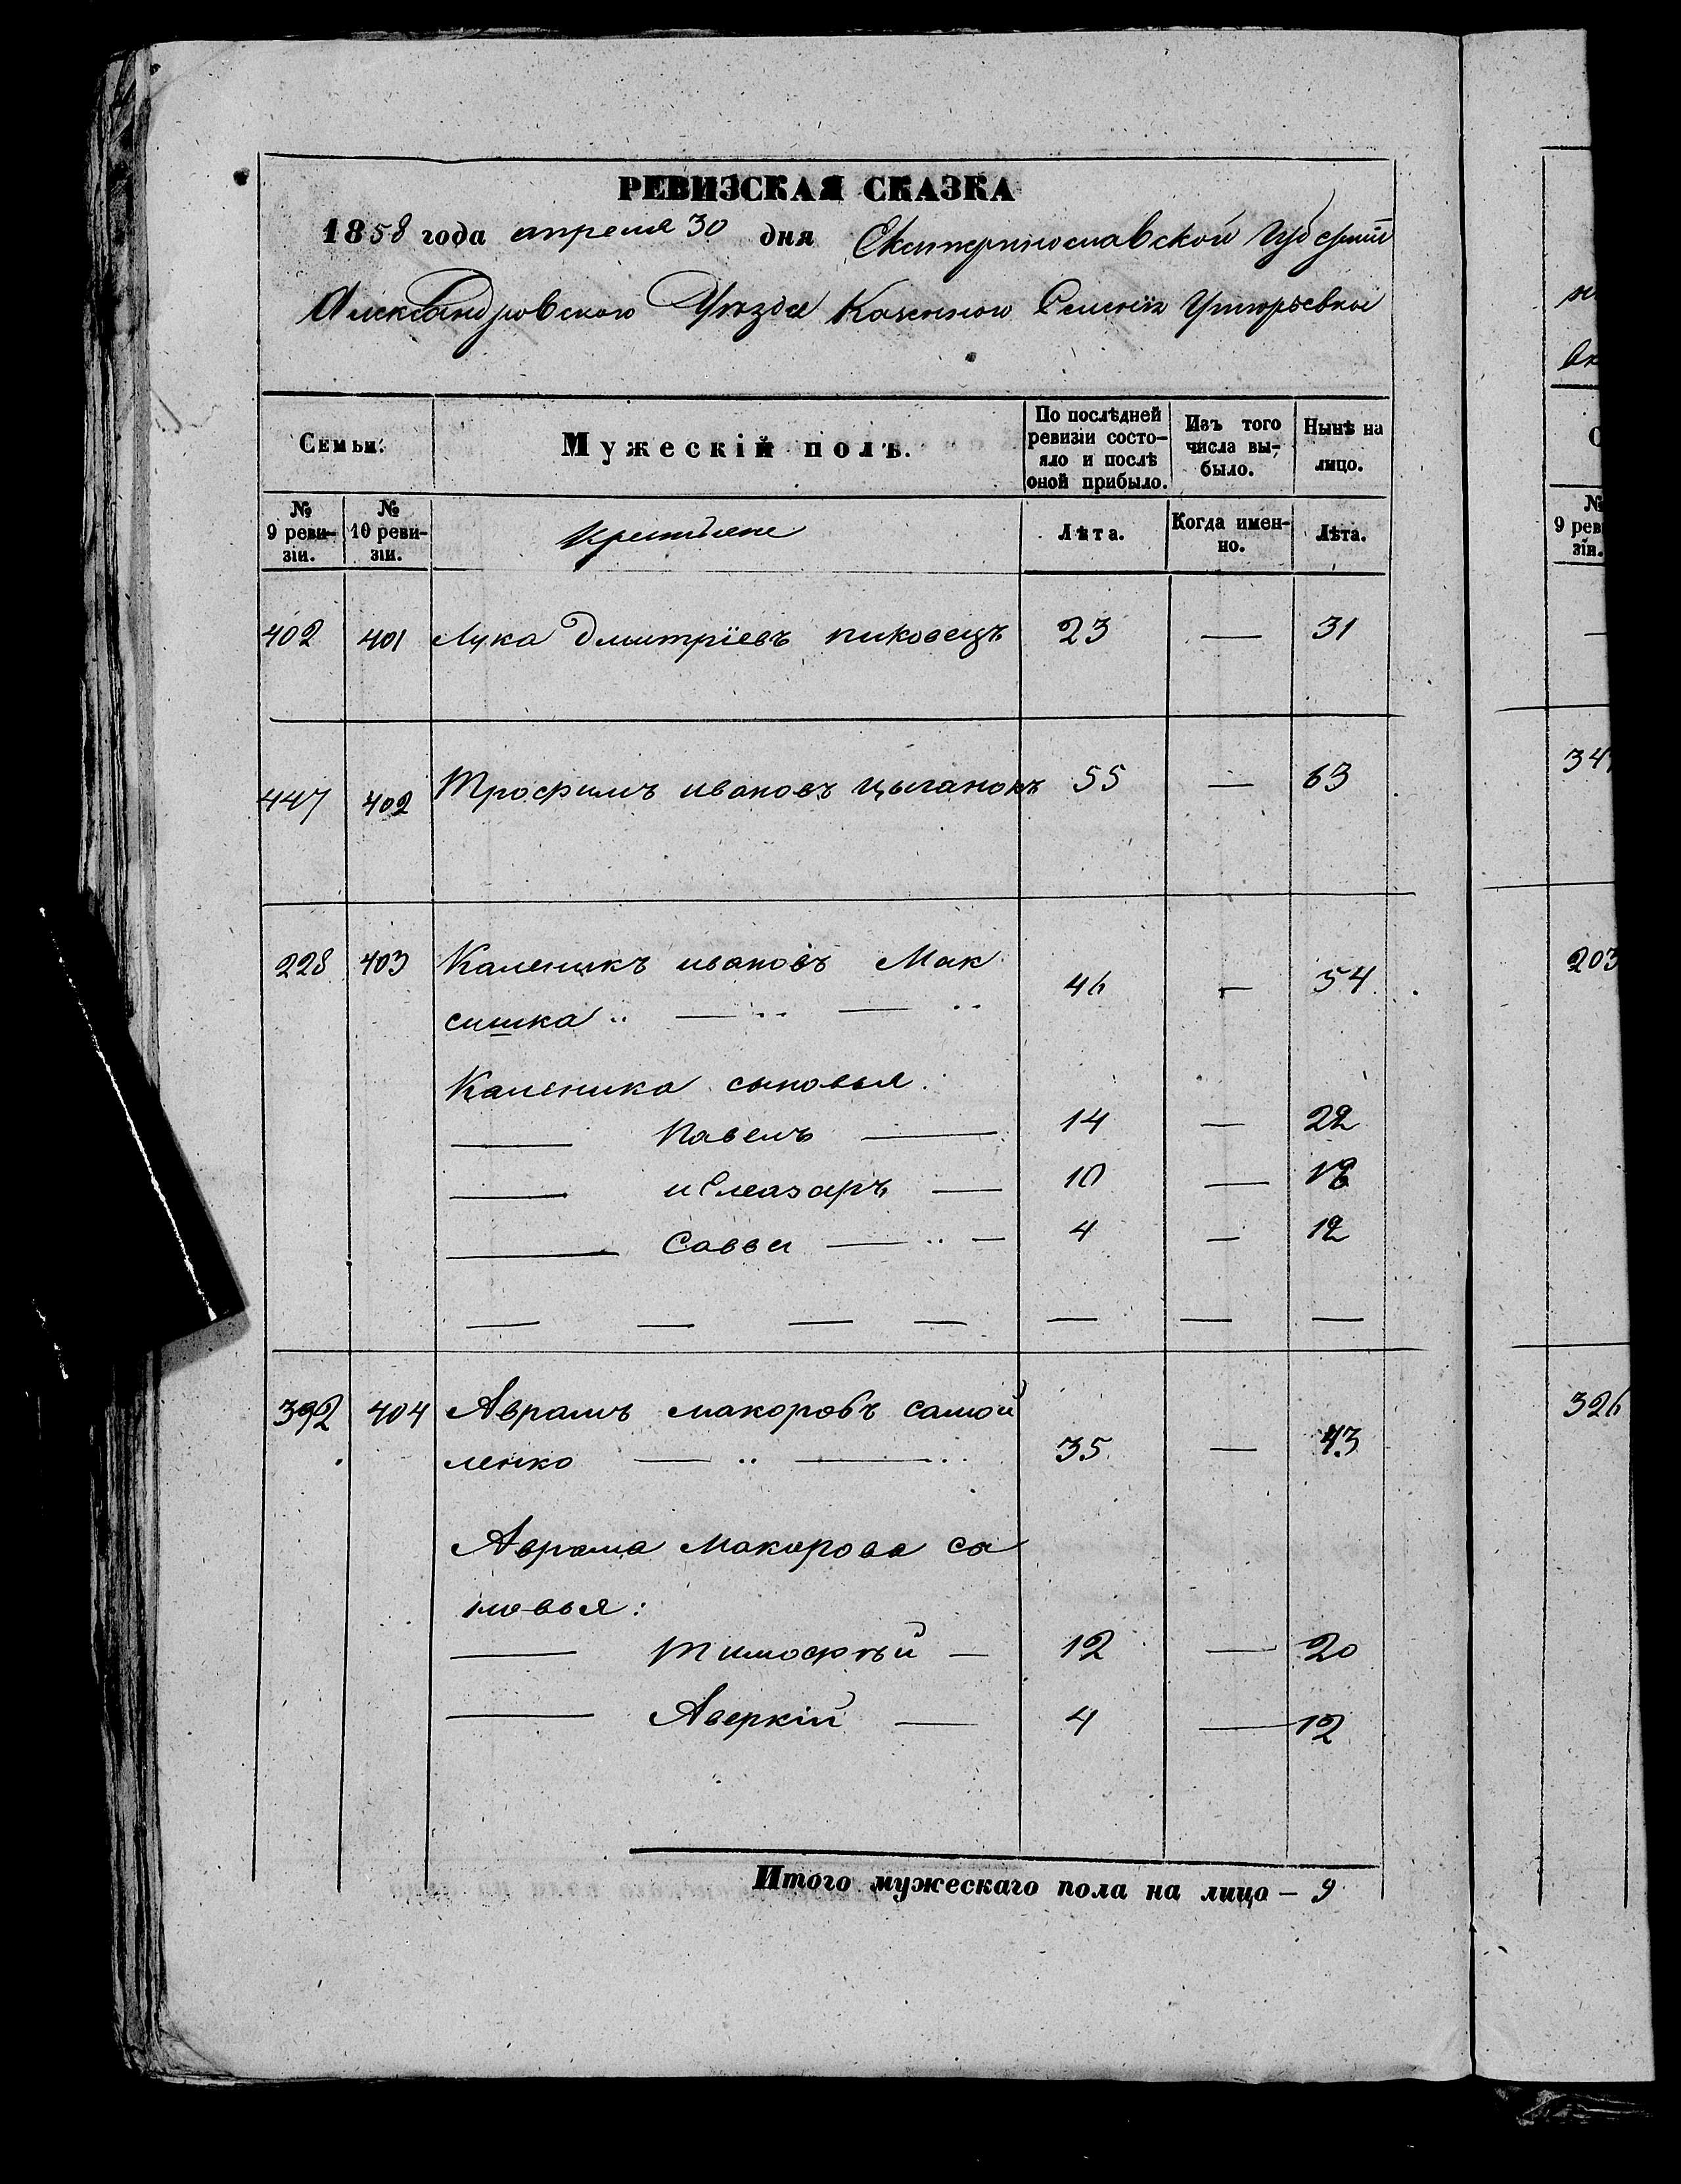 РЕВИЗСКАЯ СКАЗКА
1858 года апреля 30 дня Екатеринославской Губерніи
Александровского Уезда Казенной Селенія Григорьевки
Семьи. Мужескій полъ. По послѣдней ревизіи состо- яло и послѣ оной прибыло. Изъ того числа вы- было. Нынѣ на лицо.
№ 9 реви- зіи. № 10 реви- зіи. крестьяне Лѣта. Когда имен- но. Лѣта.
402 401 Лука дмитріевъ пиковецъ 23 — 31
447 402 Трофимъ ивановъ цыганокъ 55 — 63
228 403 Каленикъ ивановъ Мак
сишка 46 — 54
Каленика сыновья:
Павелъ 14 — 22
иЕлеазаръ 10 — 18
Савва 4 — 12
392 404 Аврамъ макоровъ самой
ленко 35 — 43
Аврама Макорова са
новья:
тимофѣй 12 — 20
Аверкій 4 — 12
Итого мужескаго пола на лицо — 9
№
9 рев
зіи.
34
203
326